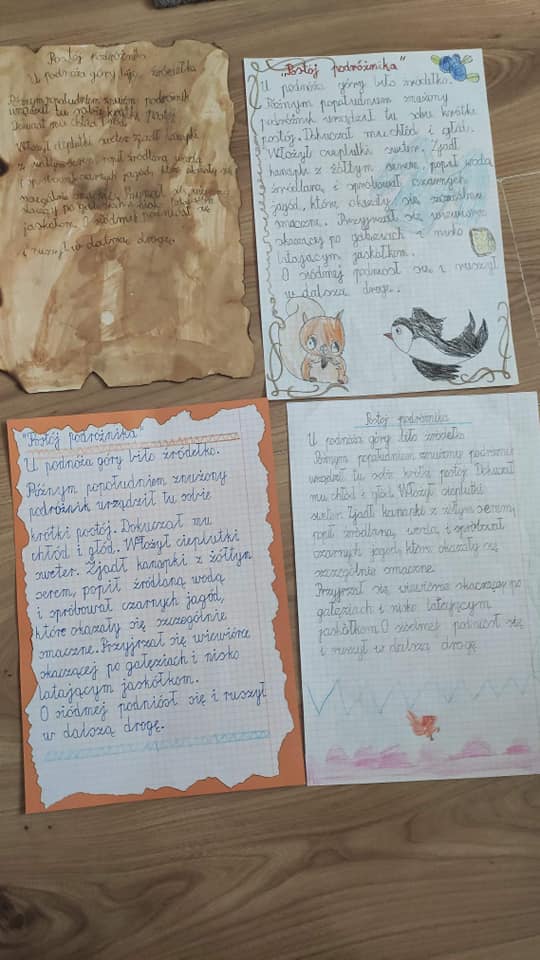 Postój podróżnika
U podnóża góry biło źródełko
Późnym popołudniem znużony podróżnik
urządził tu sobie krótki postój
Dokuczał mu chłód i głód
Włożył cieplutki sweter Zjadł kanapki
z żółtym serem, popił źródlaną wodą
i spróbował czarnych jagód, które okazały się
szczególnie smaczne. Przyjrzał się wiewiórce
skaczącej po gałęziach i nisko latającym
jaskółkom. O siódmej podniósł się
i ruszył w dalszą drogę.
"Postój podróżnika"
U podnóża góry biło źródełko.
Późnym popołudniem znużony
podróżnik urządził tu sobie krótki
postój. Dokuczał mu chłód i głód.
Włożył cieplutki sweter. Zjadł
kanapki z żółtym serem, popił wodą
źródlaną i spróbował czarnych
jagód, które okazały się szczególnie
smaczne. Przyjrzał się wiewiórce
skaczącej po gałęziach i nisko
latającym jaskółkom.
O siódmej podniósł się i ruszył
w dalszą drogę.
"Postój podróżnika"
U podnóża góry biło źródełko.
Późnym popołudniem znużony
podróżnik urządził tu sobie
krótki postój. Dokuczał mu
chłód i głód. Włożył cieplutki
sweter. Zjadł kanapki z żółtym
serem, popił źródlaną wodą
i spróbował czarnych jagód,
które okazały się szczególnie
smaczne. Przyjrzał się wiewiórce
skaczącej po gałęziach i nisko
latającym jaskółkom.
O siódmej podniósł się i ruszył
w dalszą drogę.
Postój podróżnika
U podnóża góry biło źródełko
Późnym popołudniem znużony podróżnik
urządził tu sobie krótki postój. Dokuczał
mu chłód i głód. Włożył cieplutki
sweter. Zjadł kanapki z żółtym serem,
popił źródlaną, wodą i spróbował
czarnych jagód, które okazały się
szczególnie smaczne.
Przyjrzał się wiewiórce skaczącej po
gałęziach i nisko latającym
jaskółkom. O siódmej podniósł się
i ruszył w dalszą drogę